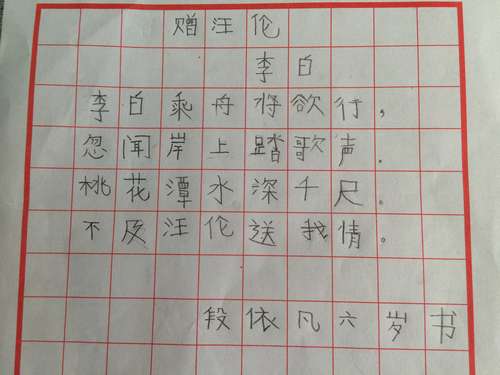 赠汪伦
李白
李白乘舟将欲行，
忽闻岸上踏歌声.
桃花潭水深千尺。
不及汪伦送我情。
段依凡六岁书